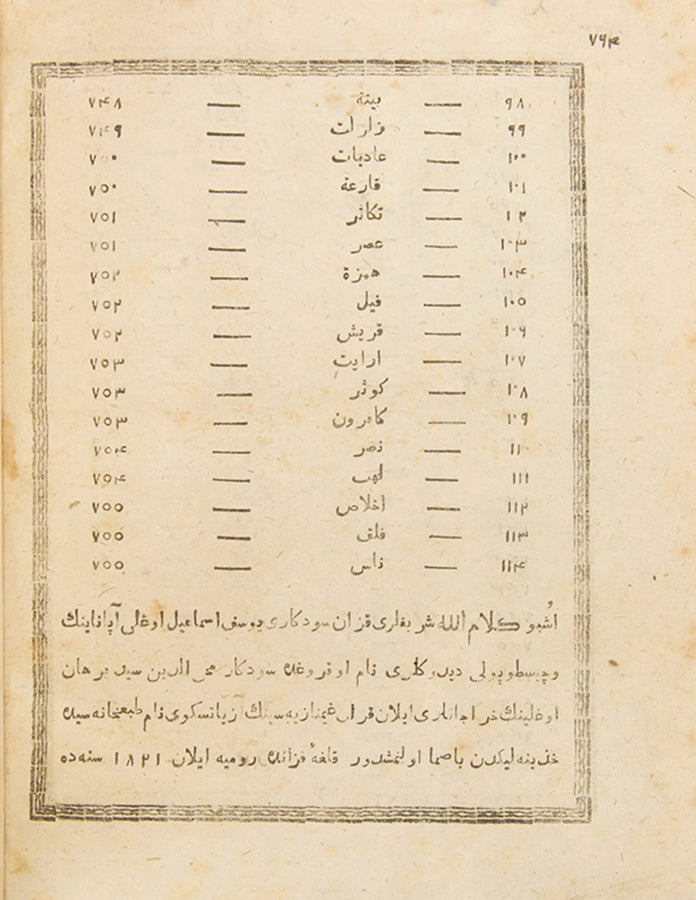 ٧٦۴
٩٨ — بينة — ٧۴٨
٩٩ — زلزات — ٧۴٩
١٠٠ — عاديات — ٧٥٠
١٠١ — قارعة — ٧٥٠
١٢ — تكاثر — ٧٥١
١٠٣ — عصر — ٧٥١
١٠۴ — همزة — ٧٥٢
١٠٥ — فيل — ٧٥٢
١٠٦ — قريش — ٧٥٢
١٠٧ — ارايت — ٧٥٣
١٠٨ — كوثر — ٧٥٣
١٠٩ — كافرون — ٧٥٣
١١٠ — نصر — ٧٥۴
١١١ — لهب — ٧٥۴
١١٢ — اخلاص — ٧٥٥
١١٣ — فلق — ٧٥٥
١١۴ — ناس — ٧٥٥
اُشبو كلام الله شريفلرى قزان سودكارى يوسف اسماعيل اوغلى آپاناينك
وچيسطوپولى ديدوكلرى نام اوقروغده سودكار محى الدين سيد برهان
اوغلينك خراجاتلرى ايلان قزان غيمنازيه سينك آزياتسكوى نام طبعخانه سيده
خذينه ليكدن باصما اولنمشدور قلغهٔ قزانده روميه ايلان ١٨٢١ سنه ده